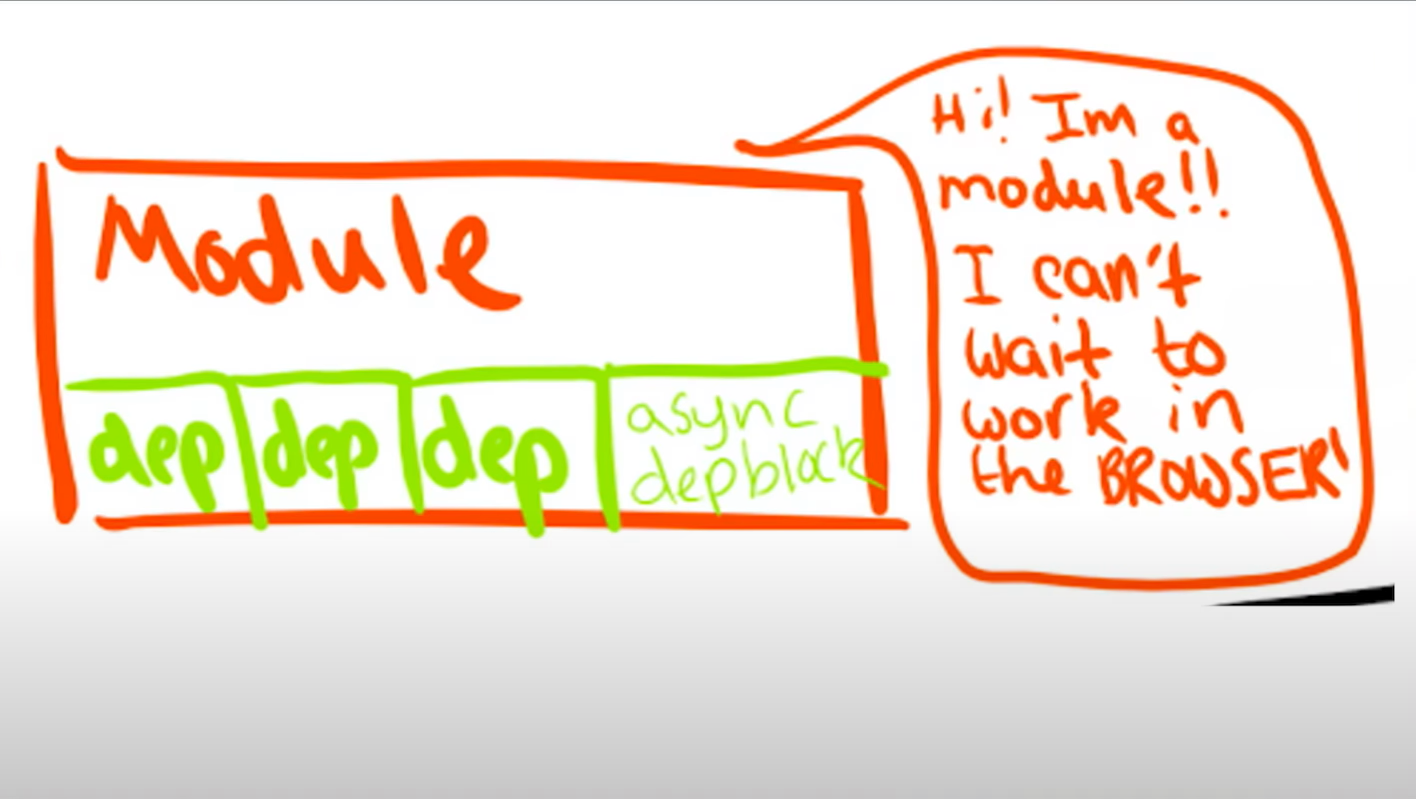 Module
dep dep dep
async
depblock
Hi! Im a
module!!
I can't
wait to
work in
the BROWSER!